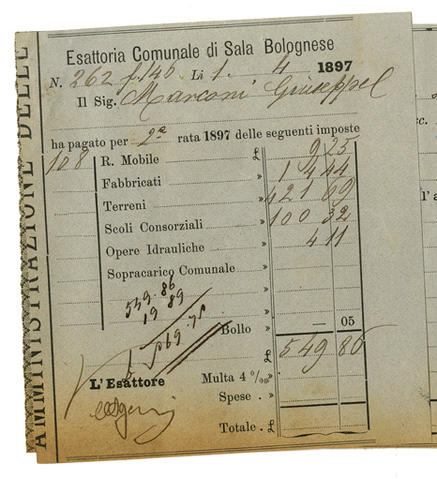 AMMINISTRAZIONE DELLE
Esattoria Comunale di Sala Bolognese
N. 262 f. 146 Li 1. 4 1897
Il Sig. Marconi Giuseppe
ha pagato per 2a rata 1897 delle seguenti imposte
108 R. Mobile £ 9 25
Fabbricati » 1 4 44
Terreni » 421 69
Scoli Consorziali » 100 32
Opere Idrauliche » 4 11
Sopracarico Comunale »
549.86
19 89
569.75
Bollo » — 05
£ 549 86
L'Esattore
Multa 4 % »
Spese . »
Totale . £